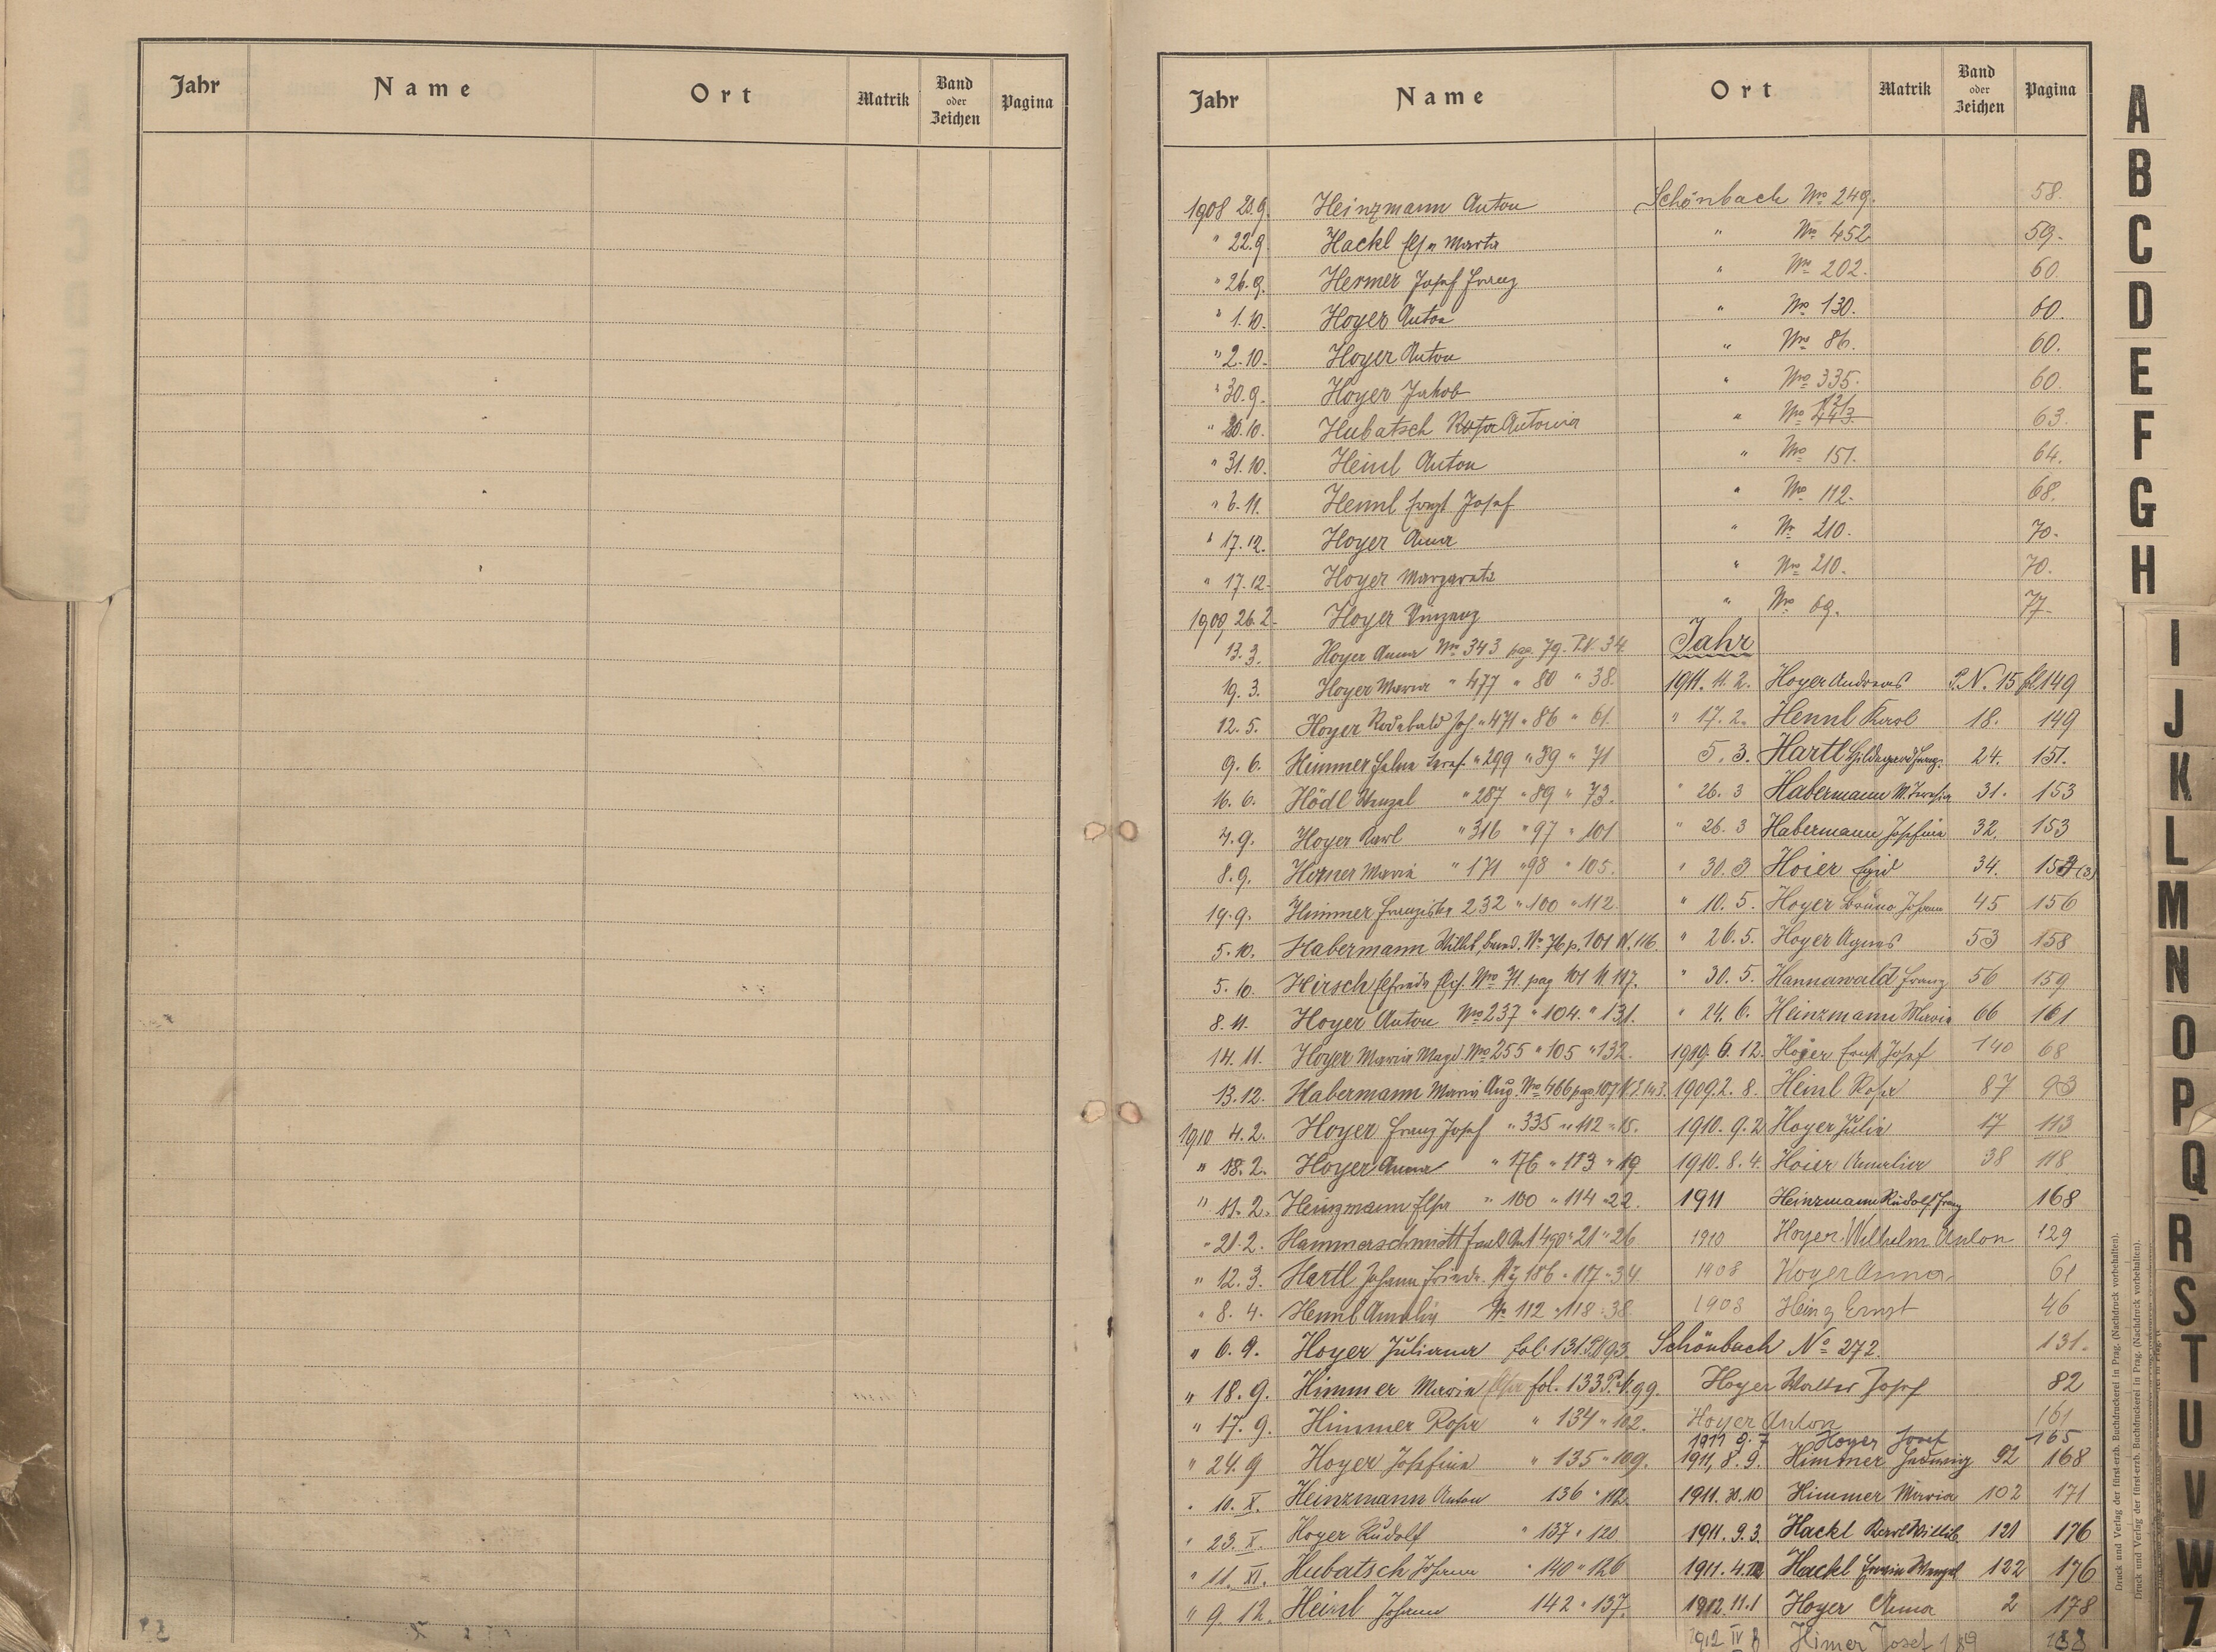 Jahr Name Ort Matrik Band oder Zeichen Pagina
Jahr Name Ort Matrik Band oder Zeichen Pagina
1908 20.9. Heinzmann Anton Schönbach No 249. 58.
" 22.9. Hackl Elsa Marta " No 452 59.
" 26.9. Hermer Josef Franz " No 202. 60.
" 1.10. Hoyer Anton " No 130. 60.
" 2.10. Hoyer Anton " No 86. 60.
" 30.9. Hoyer Jakob " No 335. 60.
" 10. Hubatsch Rosa Antonia " No 63.
" 31.10. Heinl Anton " No 151. 64.
" 6.11. Hennl Ernst Josef " No 112. 68.
" 17.12. Hoyer Anna " No 210. 70.
" 17.12. Hoyer Margareta " No 210. 70.
1909 26.2. Hoyer Vinzenz " No 69. 77.
13.3. Hoyer Anna No 343 pag. 79. P.N. 34. Jahr
19.3. Hoyer Maria " 477 " 80 " 38. 1911. 11.2. Hoyer Andreas P.N. 15 fol 149
12.5. Hoyer Josef " 471 " 86 " 61. " 17.2. Hennl Karl 18. 149
9.6. Himmer " 299 " 89 " 71 5.3. Hartl Hildegard 24. 151.
16.6. Hödl Wenzel " 287 " 89 " 73. " 26.3 Habermann M. Theresia 31. 153
4.9. Hoyer Karl " 316 " 97 " 101 " 26.3 Habermann Josefina 32. 153
8.9. Horner Maria " 171 " 98 " 105. " 30.3 Hoier Egid 34. 154 (3)
19.9. Himmer Franziska 232 " 100 " 112. " 10.5. Hoyer Bruno Johann 45 156
5.10. Habermann Willib. No 76 p. 101 N. 116. " 26.5. Hoyer Agnes 53 158
5.10. Hirsch Elfrieda No 71. pag 101 N. 117. " 30.5. Hannawald Franz 56 159
8.11. Hoyer Anton No 237 " 104. " 131. " 24.6. Heinzmann Maria 66 161
14.11. Hoyer Maria Magd. No 255 " 105 " 132. 6.12. Hoyer Ernst Josef 140 68
13.12. Habermann Maria Aug. No 466 pag 107 N. 143. 1909 2.8. Heinl Rosa 87 93
1910 4.2. Hoyer Franz Josef " 335 " 112 " 15. 1910. 9.2 Hoyer Julia 17 113
" 18.2. Hoyer Anna " 176 " 113 " 19 1910. 8.4. Hoier Amalia 38 118.
" 11.2. Heinzmann Elsa " 100 " 114 " 22. 1911 Heinzmann Rudolf Franz 168
" 21.2. Hammerschmidt Ant 490 " 21 " 26 1910 Hoyer Wilhelm Anton 129
" 12.3. Hartl Johann Friedr. 186 " 117 " 34. 1908 Hoyer Anna 61
" 8.4. Hennl Amalia No 112 " 118 " 38 1908 Heinz Ernst 46
" 6.9. Hoyer Juliana fol. 131 P.N 93. Schönbach No 272. 131.
" 18.9. Himmer Maria fol. 133 P.N. 99. Hoyer Walter Josef 82
" 17.9. Himmer Rosa " 134 " 102. Hoyer Anton 161
1911 9.7 Hoyer Josef 165
" 24.9 Hoyer Josefina " 135 " 109. 1911, 8.9. Himmer Hedwig 92 168
" 10.X. Heinzmann Anton 136 " 112 1911. 30.10 Himmer Maria 102 171
" 23.X. Hoyer Rudolf " 137 " 120 1911. 9.3. Hackl Karl Willib. 121 176
" 11.XI. Hubatsch Johann " 140 " 126 1911. Hackl Erwin Wenzel 122 176
" 9.12. Heinl Johann 142 " 137. 1912. 11.1 Hoyer Anna 2 178
1912 IV 8 Himer Josef
A
B
C
D
E
F
G
H
I
J
K
L
M
N
O
P
Q
R
S
T
U
V
W
Z
Druck und Verlag der fürst-erzb. Buchdruckerei in Prag. (Nachdruck vorbehalten).
Druck und Verlag der fürst-erzb. Buchdruckerei in Prag. (Nachdruck vorbehalten).